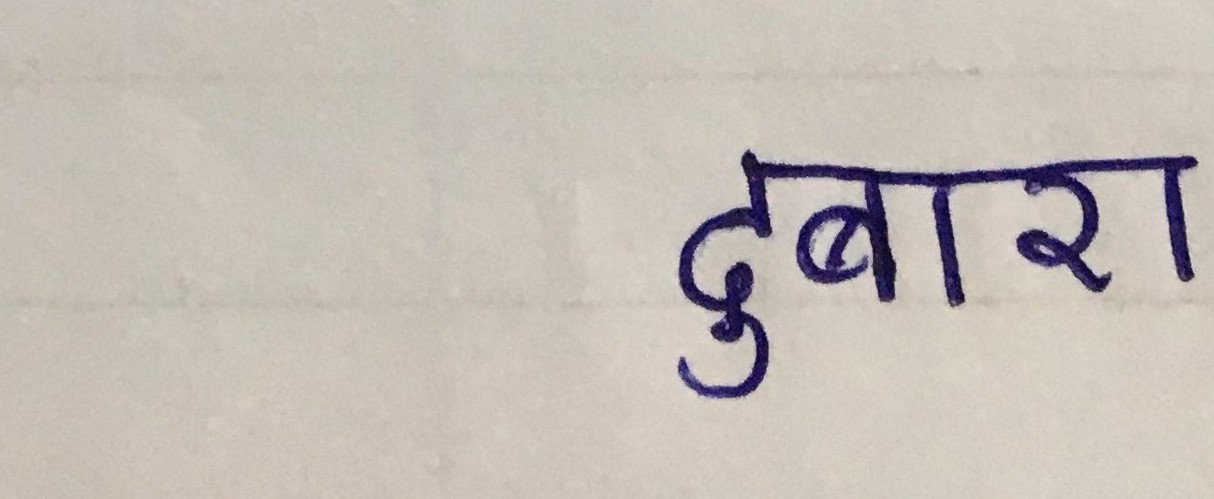 दुबारा